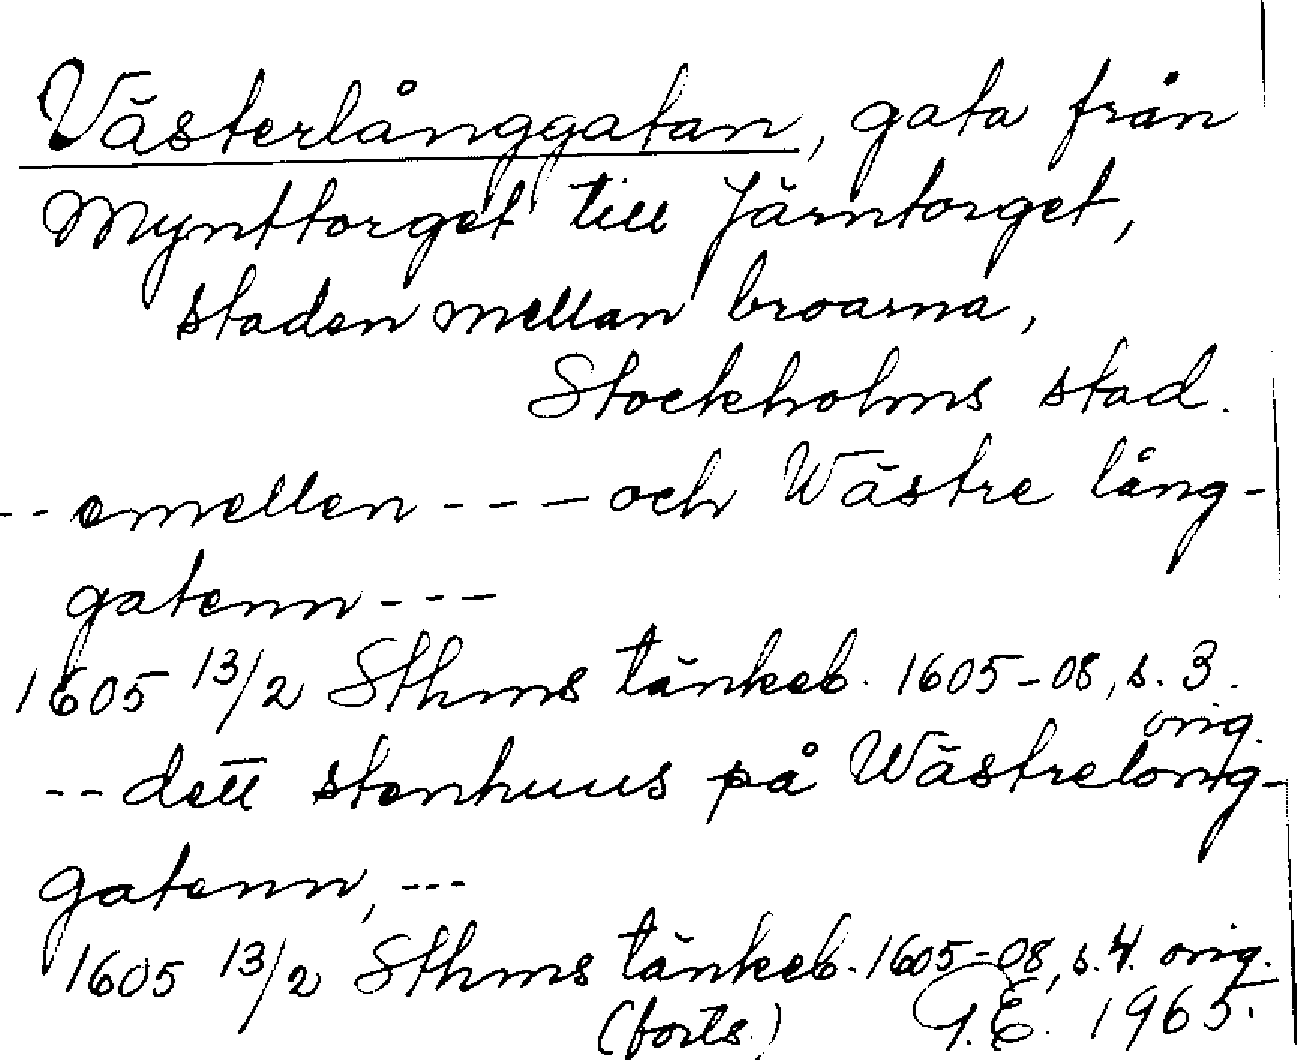 Västerlånggatan, gata från
Mynttorget till Järntorget,
staden mellan broarna,
Stockholms stad.
-- emellen --- och Wästre lång-
gatenn ---
1605 13/2 Sthms tänkeb. 1605-08, s. 3.
orig.
-- dett stenhuus på Wästrelong-
gatenn, ---
1605 13/2 Sthms tänkeb. 1605-08, s. 4. orig.
(forts.) G.E. 1965.